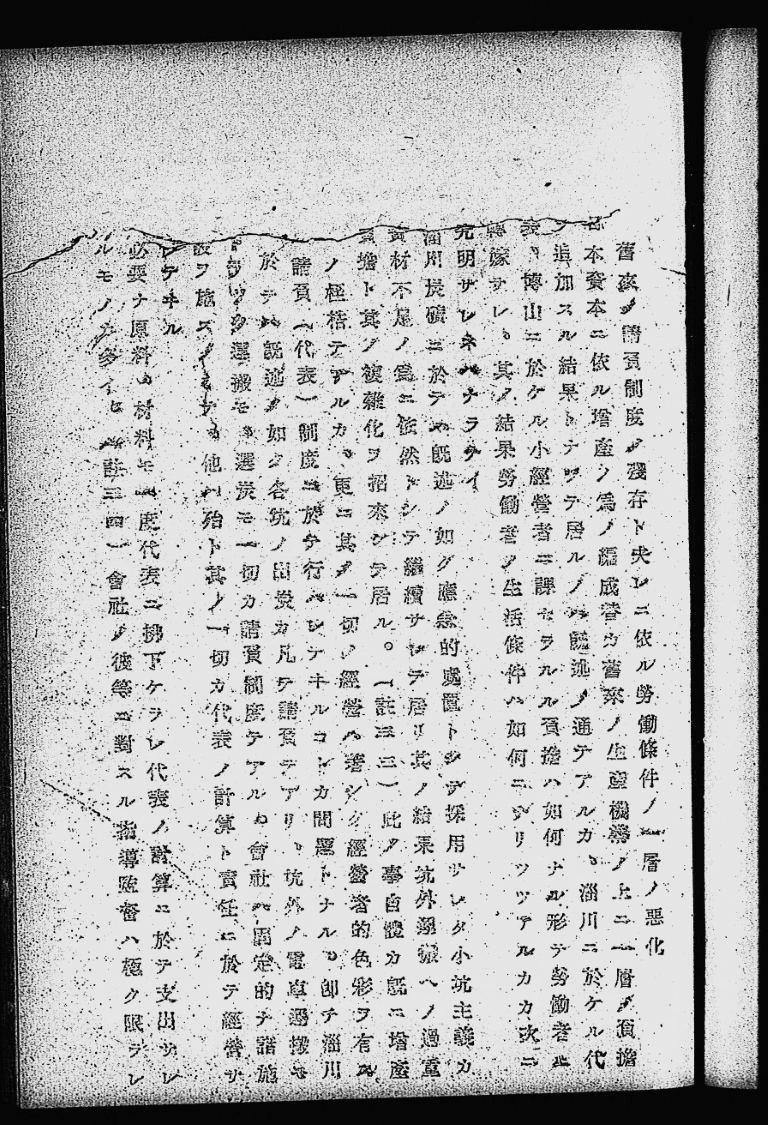 舊來ノ請負制度ノ殘存ト夫レニ依ル勞働條件ノ一層ノ惡化
日本資本ニ依ル増産ノ爲ノ編成替カ舊來ノ生産機構ノ上ニ一層ノ負擔
ヲ追加スル結果トナツテ居ルノハ既述ノ通テアルカ、淄川ニ於ケル代
表、博山ニ於ケル小經營者ニ課セラルル負擔ハ如何ナル形テ勞働者ニ
轉嫁サレ、其ノ結果勞働者ノ生活條件ハ如何ニナリツツアルカカ次ニ
究明サレネハナラナイ
淄川炭礦ニ於テハ既述ノ如ク應急的處置トシテ採用サレタ小坑主義カ
資材不足ノ爲ニ依然トシテ繼續サレテ居リ其ノ結果坑外運搬ヘノ過重
負擔ト其ノ複雜化ヲ招來シテ居ル。(註三三)此ノ事自體カ既ニ増産
ノ桎梏テアルカ、更ニ其ノ一切ノ經營ハ著シク經營者的色彩ヲ有スル
請負(代表)制度ニ於テ行ハレテヰルコトカ問題トナル。卽チ淄川
於テハ既述ノ如ク各坑ノ出炭カ凡テ請負テアリ、坑外ノ電車運搬モ
トラック運搬モ、選炭モ一切カ請負制度テアル。會社ハ固定的ナ諸施
設ヲ施ス 他ハ殆ト其ノ一切カ代表ノ計算ト責任ニ於テ經營サ
レテヰル
必要ナ原料、材料モ一度代表ニ拂下ケラレ代表ノ計算ニ於テ支出サレ
ルモノカ多イ。(註三四)會社ノ彼等ニ對スル指導監督ハ極ク限ラレ